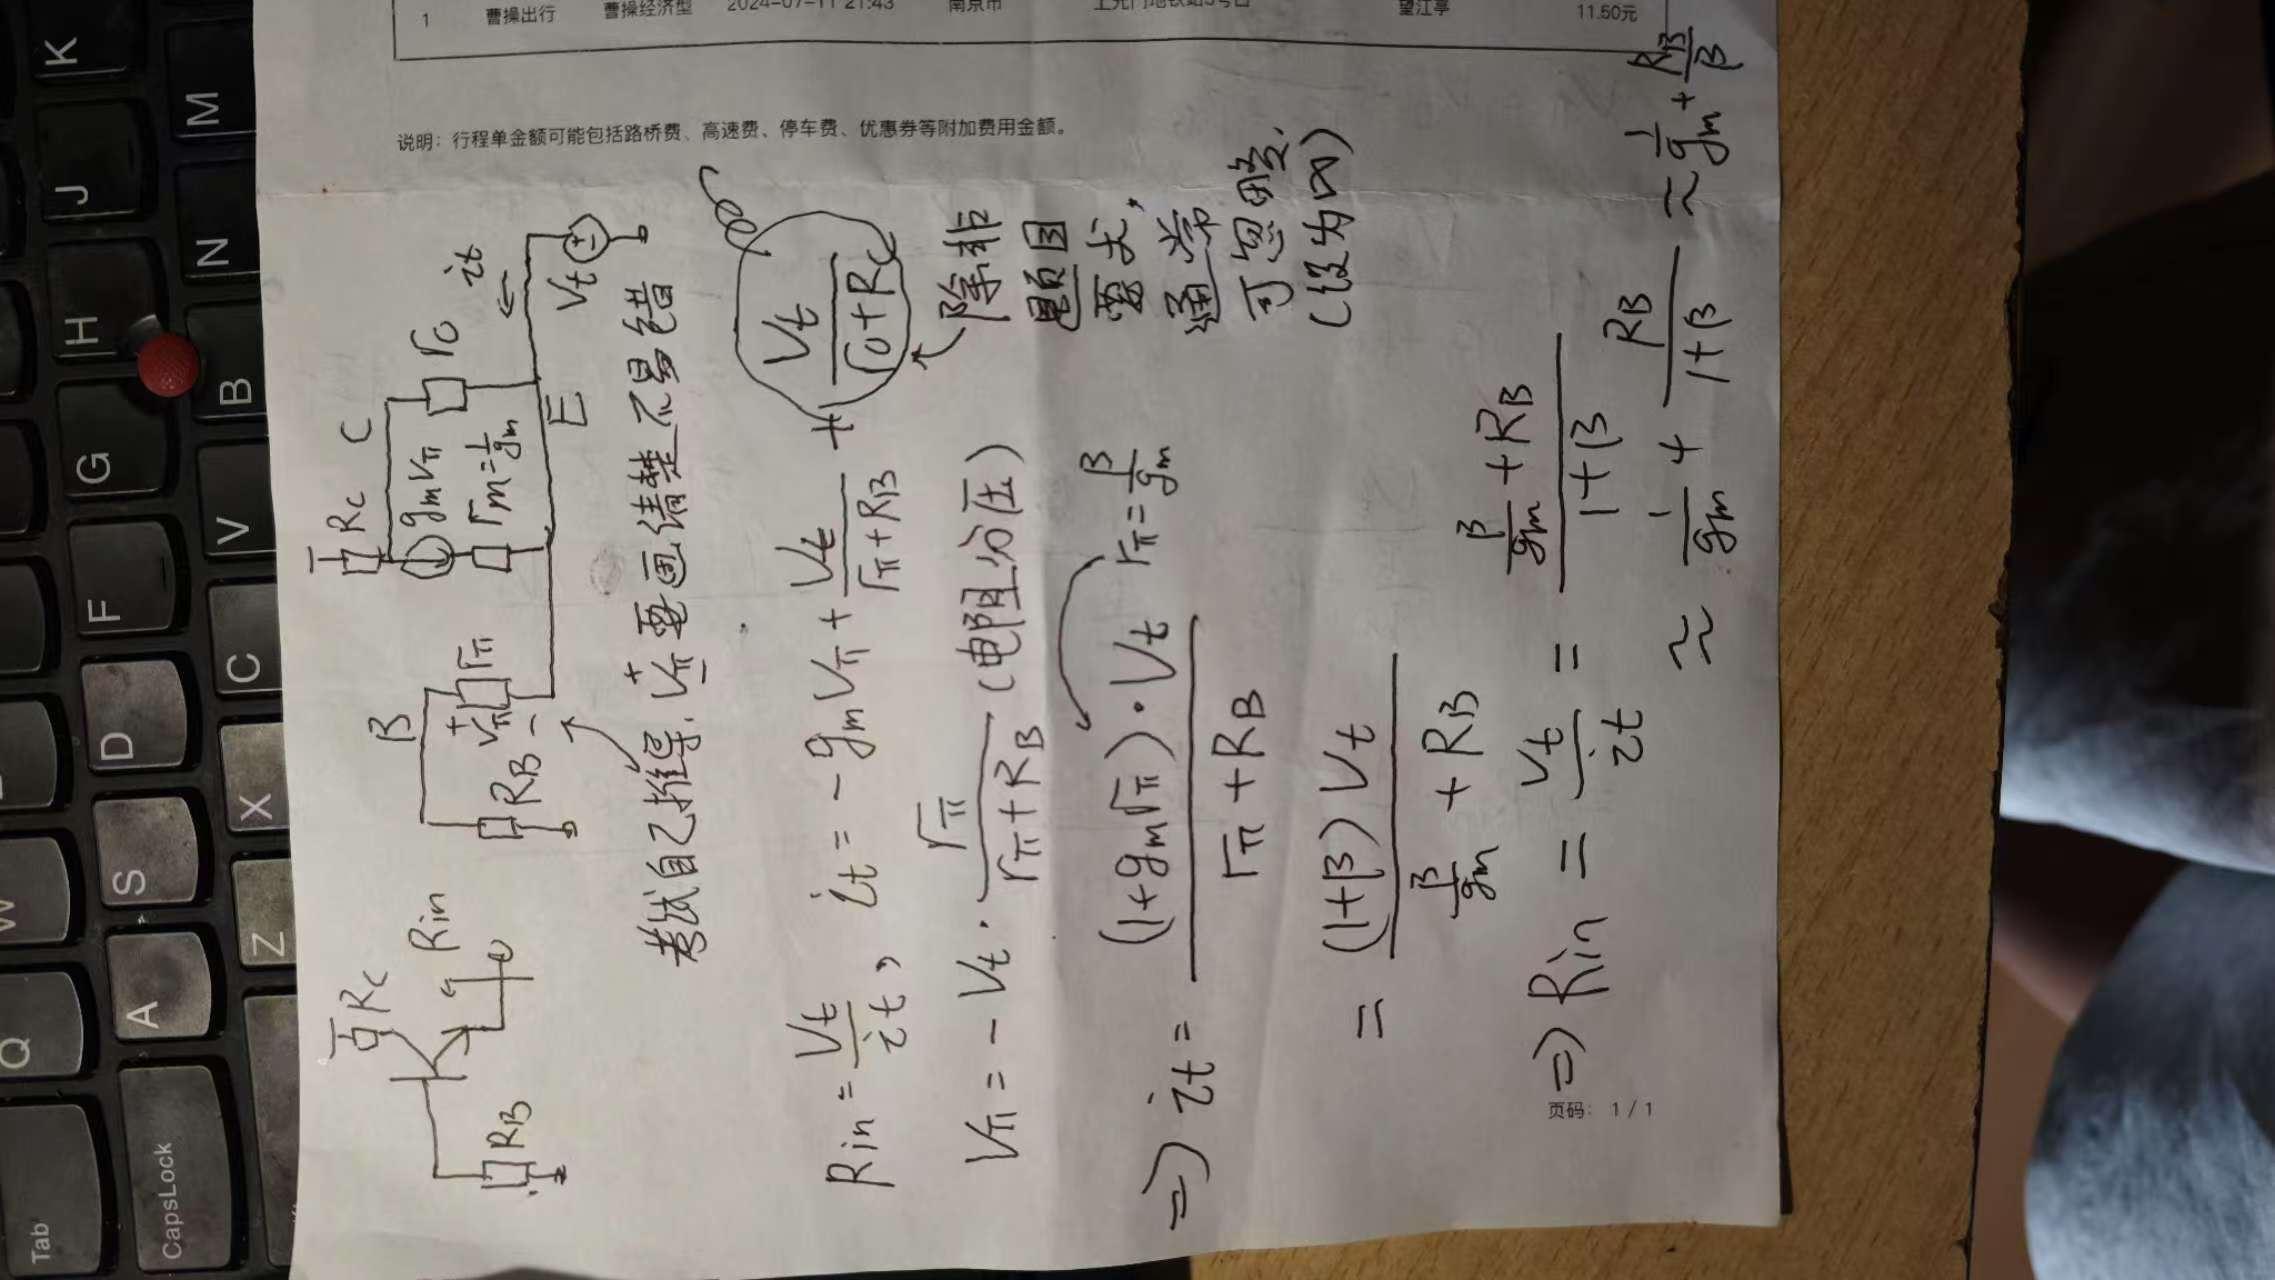 1 曹操出行 曹操经济型 2024-07-11 21:43 南京市 望江亭 11.50元
说明：行程单金额可能包括路桥费、高速费、停车费、优惠券等附加费用金额。
RB RC Rin
B RB + vπ - rπ RC C gmvπ rm=1/gm ro E it Vt
考试自己推导, + vπ - 要画清楚不易错
Rin = Vt/it, it = -gmVπ + Vt/(rπ+RB) + Vt/(ro+RC)
除非
题目
要求,
通常
可忽略.
(设为∞)
Vπ = -Vt · rπ/(rπ+RB) (电阻分压)
⇒ it = (1+gmrπ)·Vt/(rπ+RB) rπ = β/gm
= (1+β)Vt/(β/gm + RB)
⇒ Rin = Vt/it = (β/gm + RB)/(1+β)
≈ 1/gm + RB/(1+β) ≈ 1/gm + RB/β
页码: 1 / 1
Tab
Q
W
CapsLock
A
S
D
F
G
H
J
K
Z
X
C
V
B
N
M